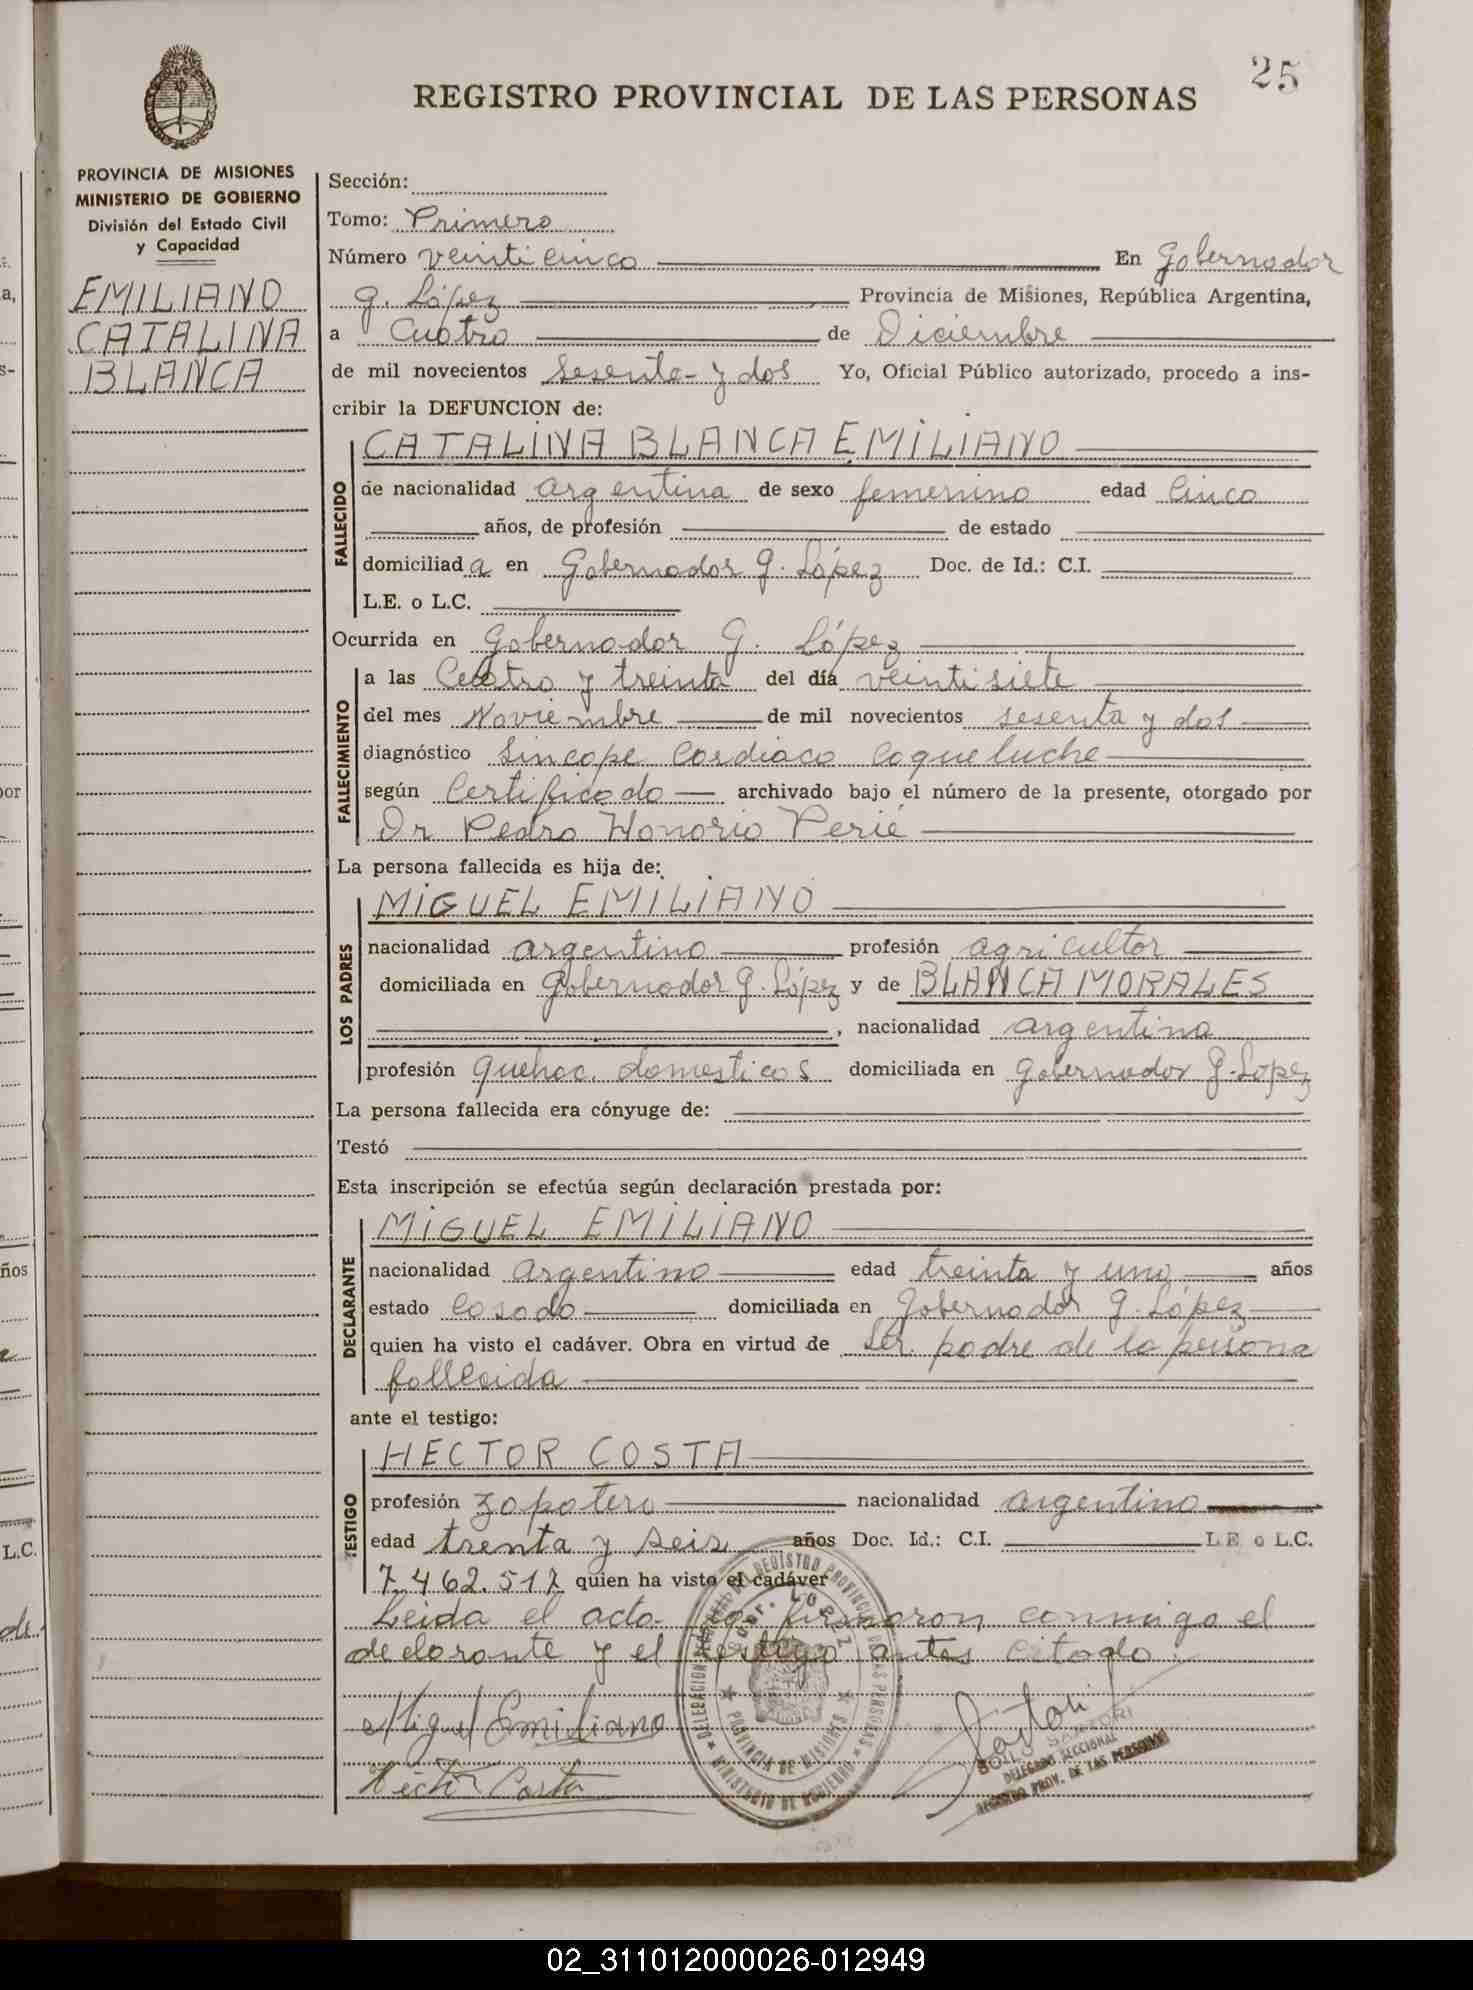 25
REGISTRO PROVINCIAL DE LAS PERSONAS
PROVINCIA DE MISIONES
MINISTERIO DE GOBIERNO
División del Estado Civil
y Capacidad
EMILIANO
CATALINA
BLANCA
Sección:
Tomo: Primero
Número veinticinco En Gobernador
G. López Provincia de Misiones, República Argentina,
a Cuatro de Diciembre
de mil novecientos sesenta y dos Yo, Oficial Público autorizado, procedo a ins-
cribir la DEFUNCION de:
CATALINA BLANCA EMILIANO
FALLECIDO
de nacionalidad argentina de sexo femenino edad cinco
años, de profesión de estado
domiciliada en Gobernador G. López Doc. de Id.: C.I.
L.E. o L.C.
Ocurrida en Gobernador G. López
FALLECIMIENTO
a las Cuatro y treinta del día veintisiete
del mes Noviembre de mil novecientos sesenta y dos
diagnóstico Sincope Cardiaco Coqueluche
según Certificado archivado bajo el número de la presente, otorgado por
Dr Pedro Honorio Perié
La persona fallecida es hija de:
LOS PADRES
MIGUEL EMILIANO
nacionalidad argentino profesión agricultor
domiciliada en Gobernador G. López y de BLANCA MORALES
, nacionalidad argentina
profesión Quehac. domesticos domiciliada en Gobernador G. Lopez
La persona fallecida era cónyuge de:
Testó
Esta inscripción se efectúa según declaración prestada por:
DECLARANTE
MIGUEL EMILIANO
nacionalidad Argentino edad treinta y uno años
estado Casado domiciliada en Gobernador G. López
quien ha visto el cadáver. Obra en virtud de ser padre de la persona
fallecida
ante el testigo:
TESTIGO
HECTOR COSTA
profesión Zapatero nacionalidad argentino
edad trenta y seis años Doc. Id.: C.I. L E o L.C.
7.462.517 quien ha visto el cadáver
Leida el acta la firmaron conmigo el
declarante y el testigo antes citado.
Miguel Emiliano
Hector Costa
DELEGACION SECCIONAL DEL REGISTRO PROVINCIAL DE LAS PERSONAS
GOBR. LOPEZ
PROVINCIA DE MISIONES
MINISTERIO DE GOBIERNO
SARTORI
DELEGADO SECCIONAL
REGISTRO PROV. DE LAS PERSONAS
ños
L.C.
02_311012000026-012949